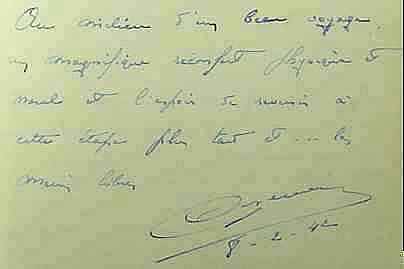 Au milieu d'un beau voyage,
un magnifique réconfort physique et
moral et l'espoir de revenir à
cette étape plus tard et ... les
mains libres
8-2-42